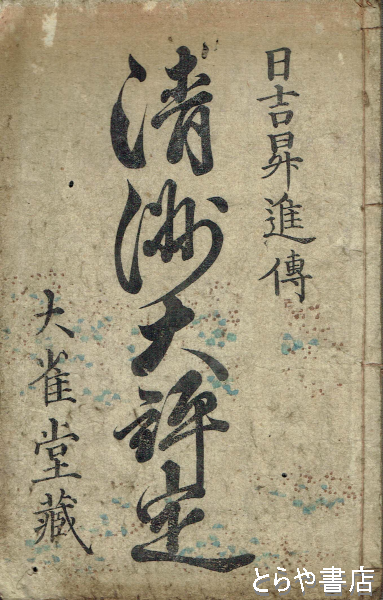 日吉昇進傳
清洲大評定
大雀堂藏
とらや書店